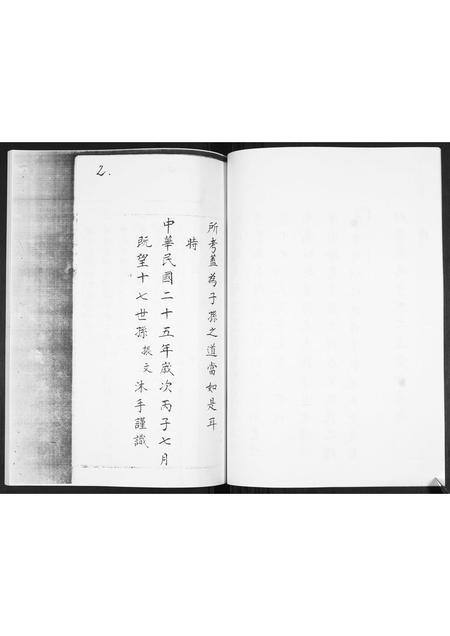 2.
所考蓋為子孫之道當如是耳
時
中華民國二十五年歲次丙子七月
既望十七世孫振文沐手謹識